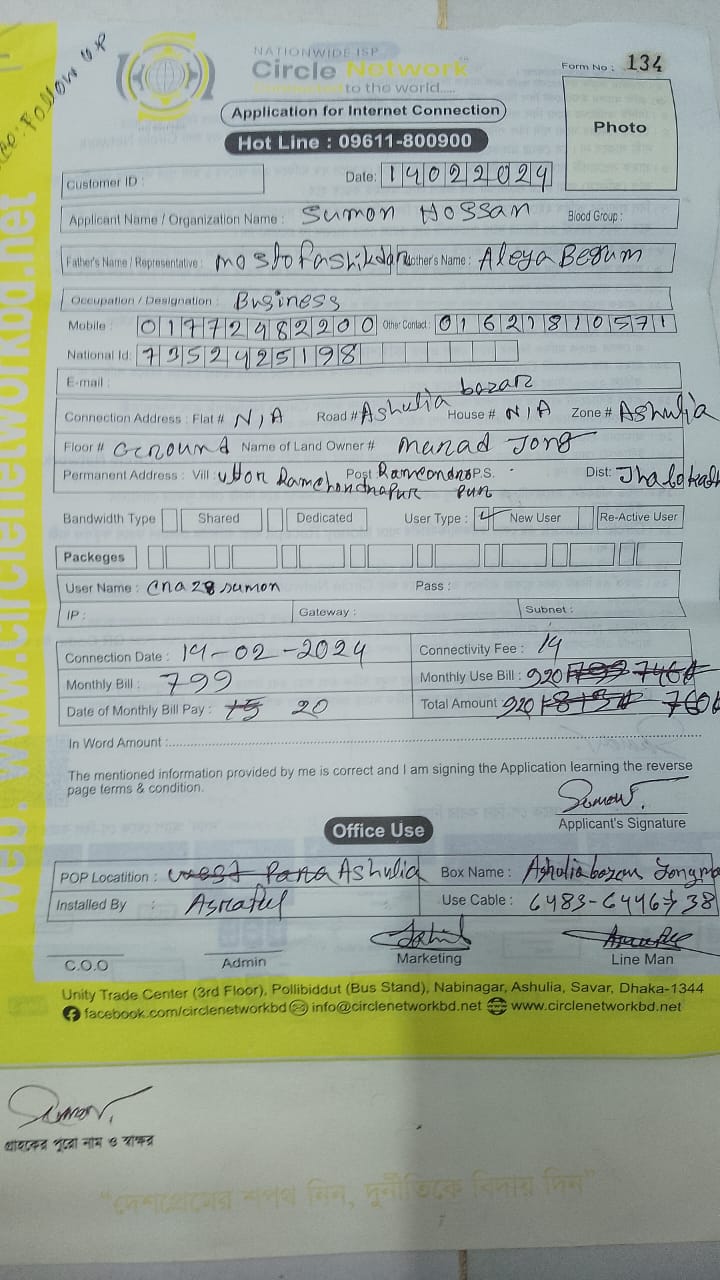 Ref: Follow UP
NATIONWIDE ISP
Circle Network
to the world.....
Form No : 134
Application for Internet Connection
Hot Line : 09611-800900
Photo
Customer ID :
Date: 14022024
Applicant Name / Organization Name : Sumon Hossan Blood Group :
Father's Name / Representative : Mosto Mother's Name : Aleya Begum
Occupation / Designation : Business
Mobile : 01772482200 Other Contact : 01621810571
National Id: 7352425198
E-mail :
Connection Address : Flat # N/A Road # Ashulia bazar House # N/A Zone # Ashulia
Floor # Ground Name of Land Owner #
Permanent Address : Vill : Post P.S. Dist:
Bandwidth Type Shared Dedicated User Type : New User Re-Active User
Packeges
User Name : cna28sumon Pass :
IP : Gateway : Subnet :
Connection Date : 14-02-2024 Connectivity Fee : 14
Monthly Bill : 799 Monthly Use Bill : 920 799 746
Date of Monthly Bill Pay : 15 20 Total Amount 920 813 760
In Word Amount :
The mentioned information provided by me is correct and I am signing the Application learning the reverse
page terms & condition.
Sumon.
Applicant's Signature
Office Use
POP Locatition : West Para Ashulia Box Name : Ashulia bazar
Installed By : Asraful Use Cable : 6483-6446 38
C.O.O Admin Marketing Line Man
Unity Trade Center (3rd Floor), Pollibiddut (Bus Stand), Nabinagar, Ashulia, Savar, Dhaka-1344
facebook.com/circlenetworkbd info@circlenetworkbd.net www.circlenetworkbd.net
web: www.circlenetworkbd.net
Sumon.
গ্রাহকের পুরো নাম ও স্বাক্ষর
“দেশপ্রেমের শপথ নিন, দুর্নীতিকে বিদায় দিন”